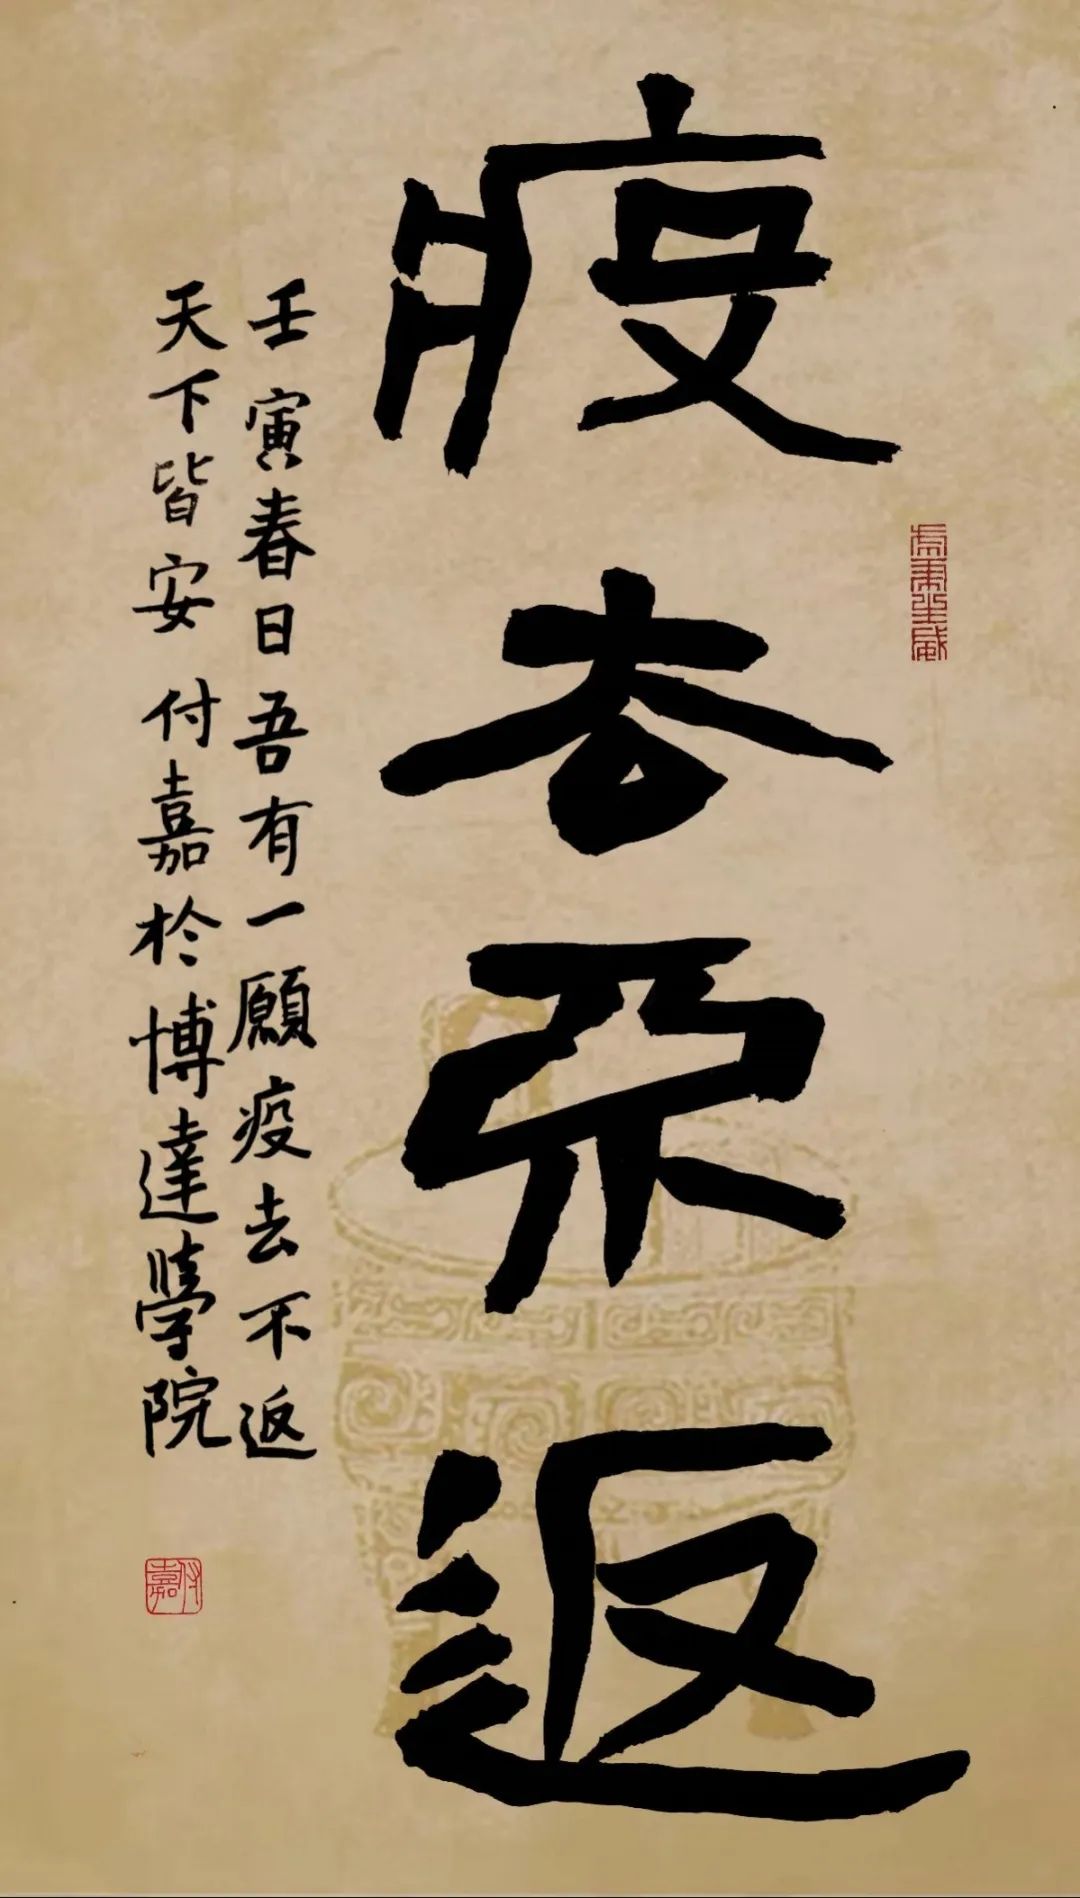 疫去不返
壬寅春日吾有一願疫去不返
天下皆安 付嘉於博達學院
付嘉